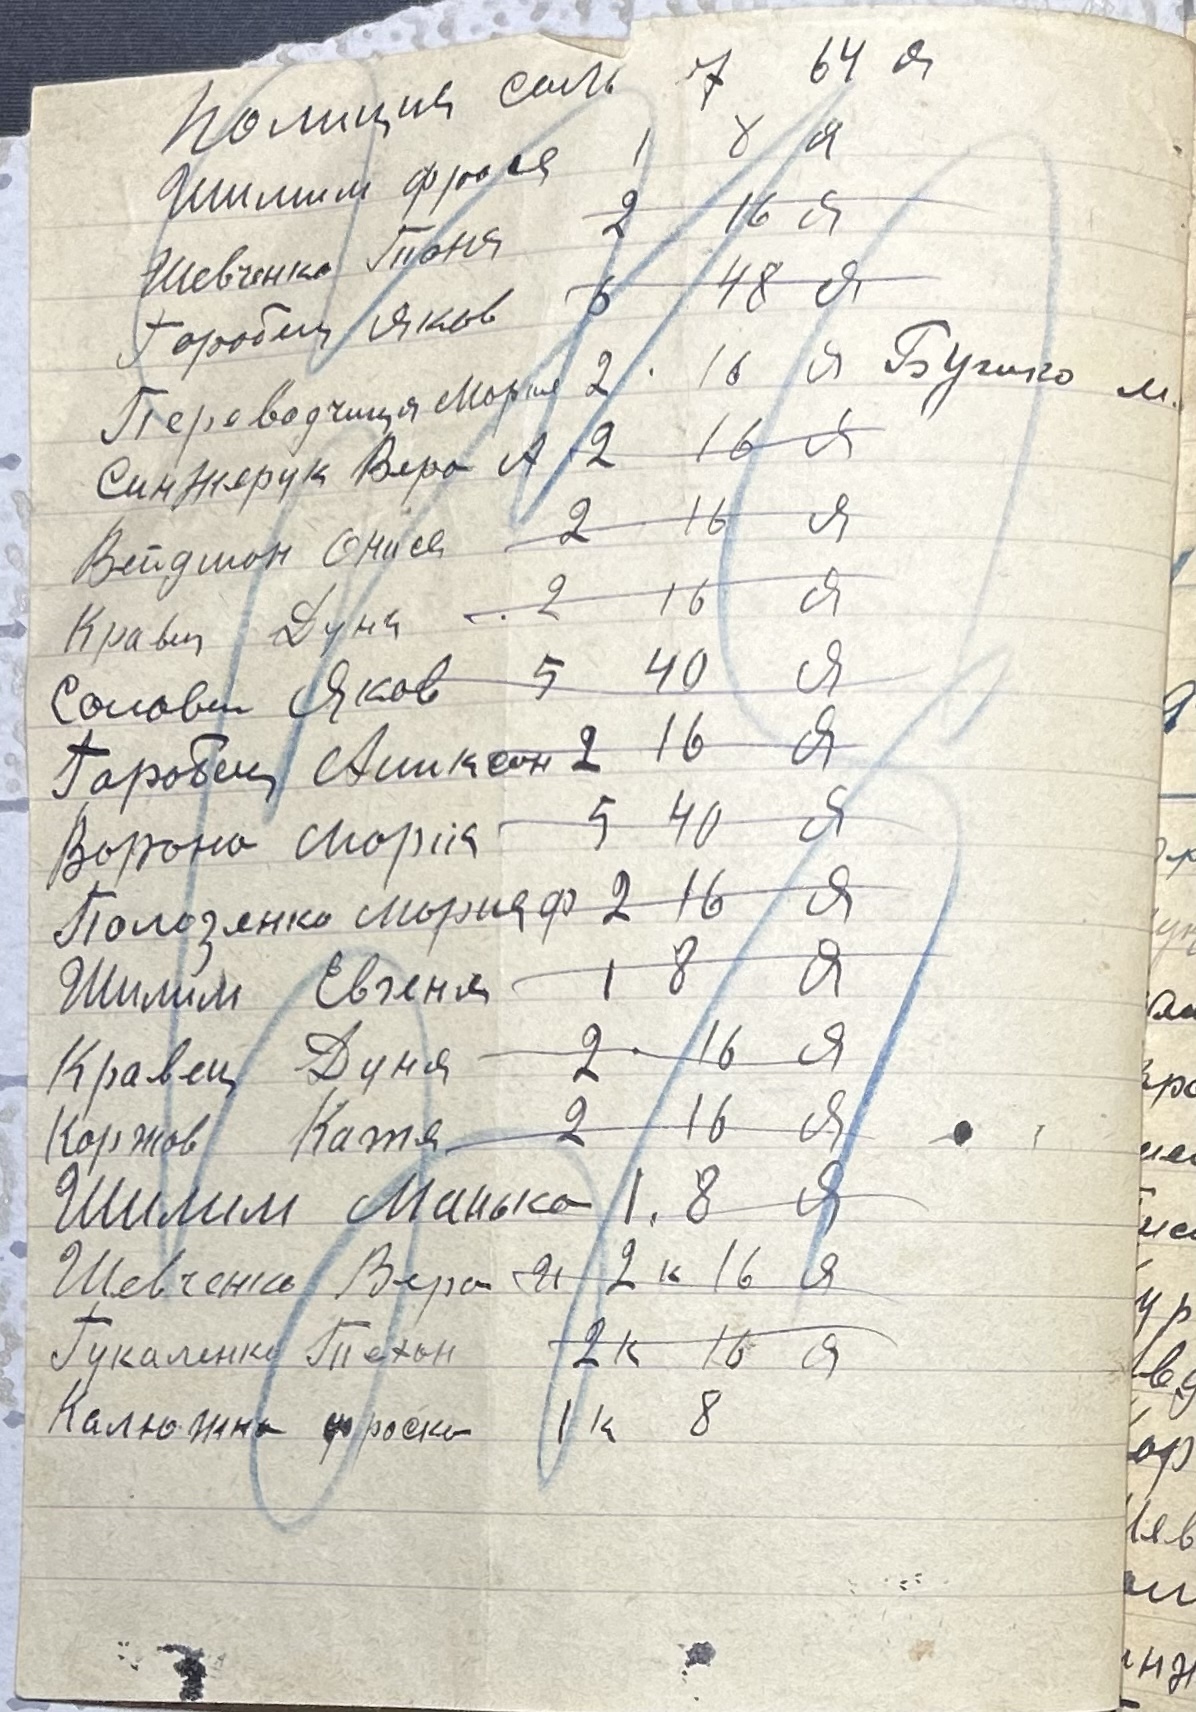 Полиция соль 7 64 Я
Шилим Фрося 1 8 Я
Шевченко Таня 2 16 Я
Горобец Яков 6 48 Я
Переводчиця Мория 2 · 16 Я Бугико м.
Синжерук Вера А 2 16 Я
Вейдман Онися 2 16 Я
Кравец Дуня 2 16 Я
Соловей Яков 5 40 Я
Горобец 2 16 Я
Ворона Мория 5 40 Я
Полозенко Мория Ф 2 16 Я
Шилим Евгеня 1 8 Я
Кравец Дуня 2 · 16 Я
Коржов Катя 2 16 Я
Шилим Манька 1. 8 Я
Шевченко Вера И 2 к 16 Я
Гукаленко Техон 2к 16 Я
Калюжна Фроска 1 к 8